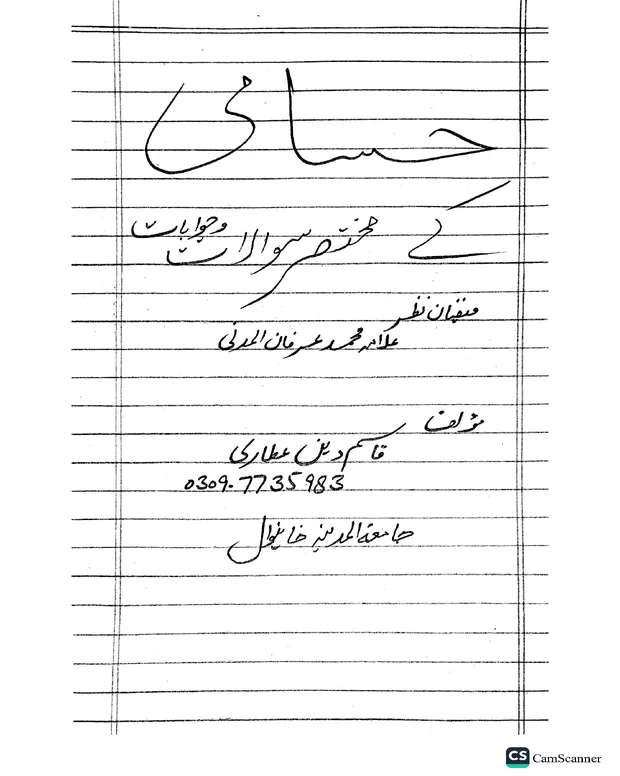 حسامی
کے مختصر سوالات وجوابات
فیضان نظر
علامہ محمد عرفان المدنی
مؤلف
قاسم دین عطاری
0309-7735983
جامعۃ المدینہ خانیوال
CS CamScanner